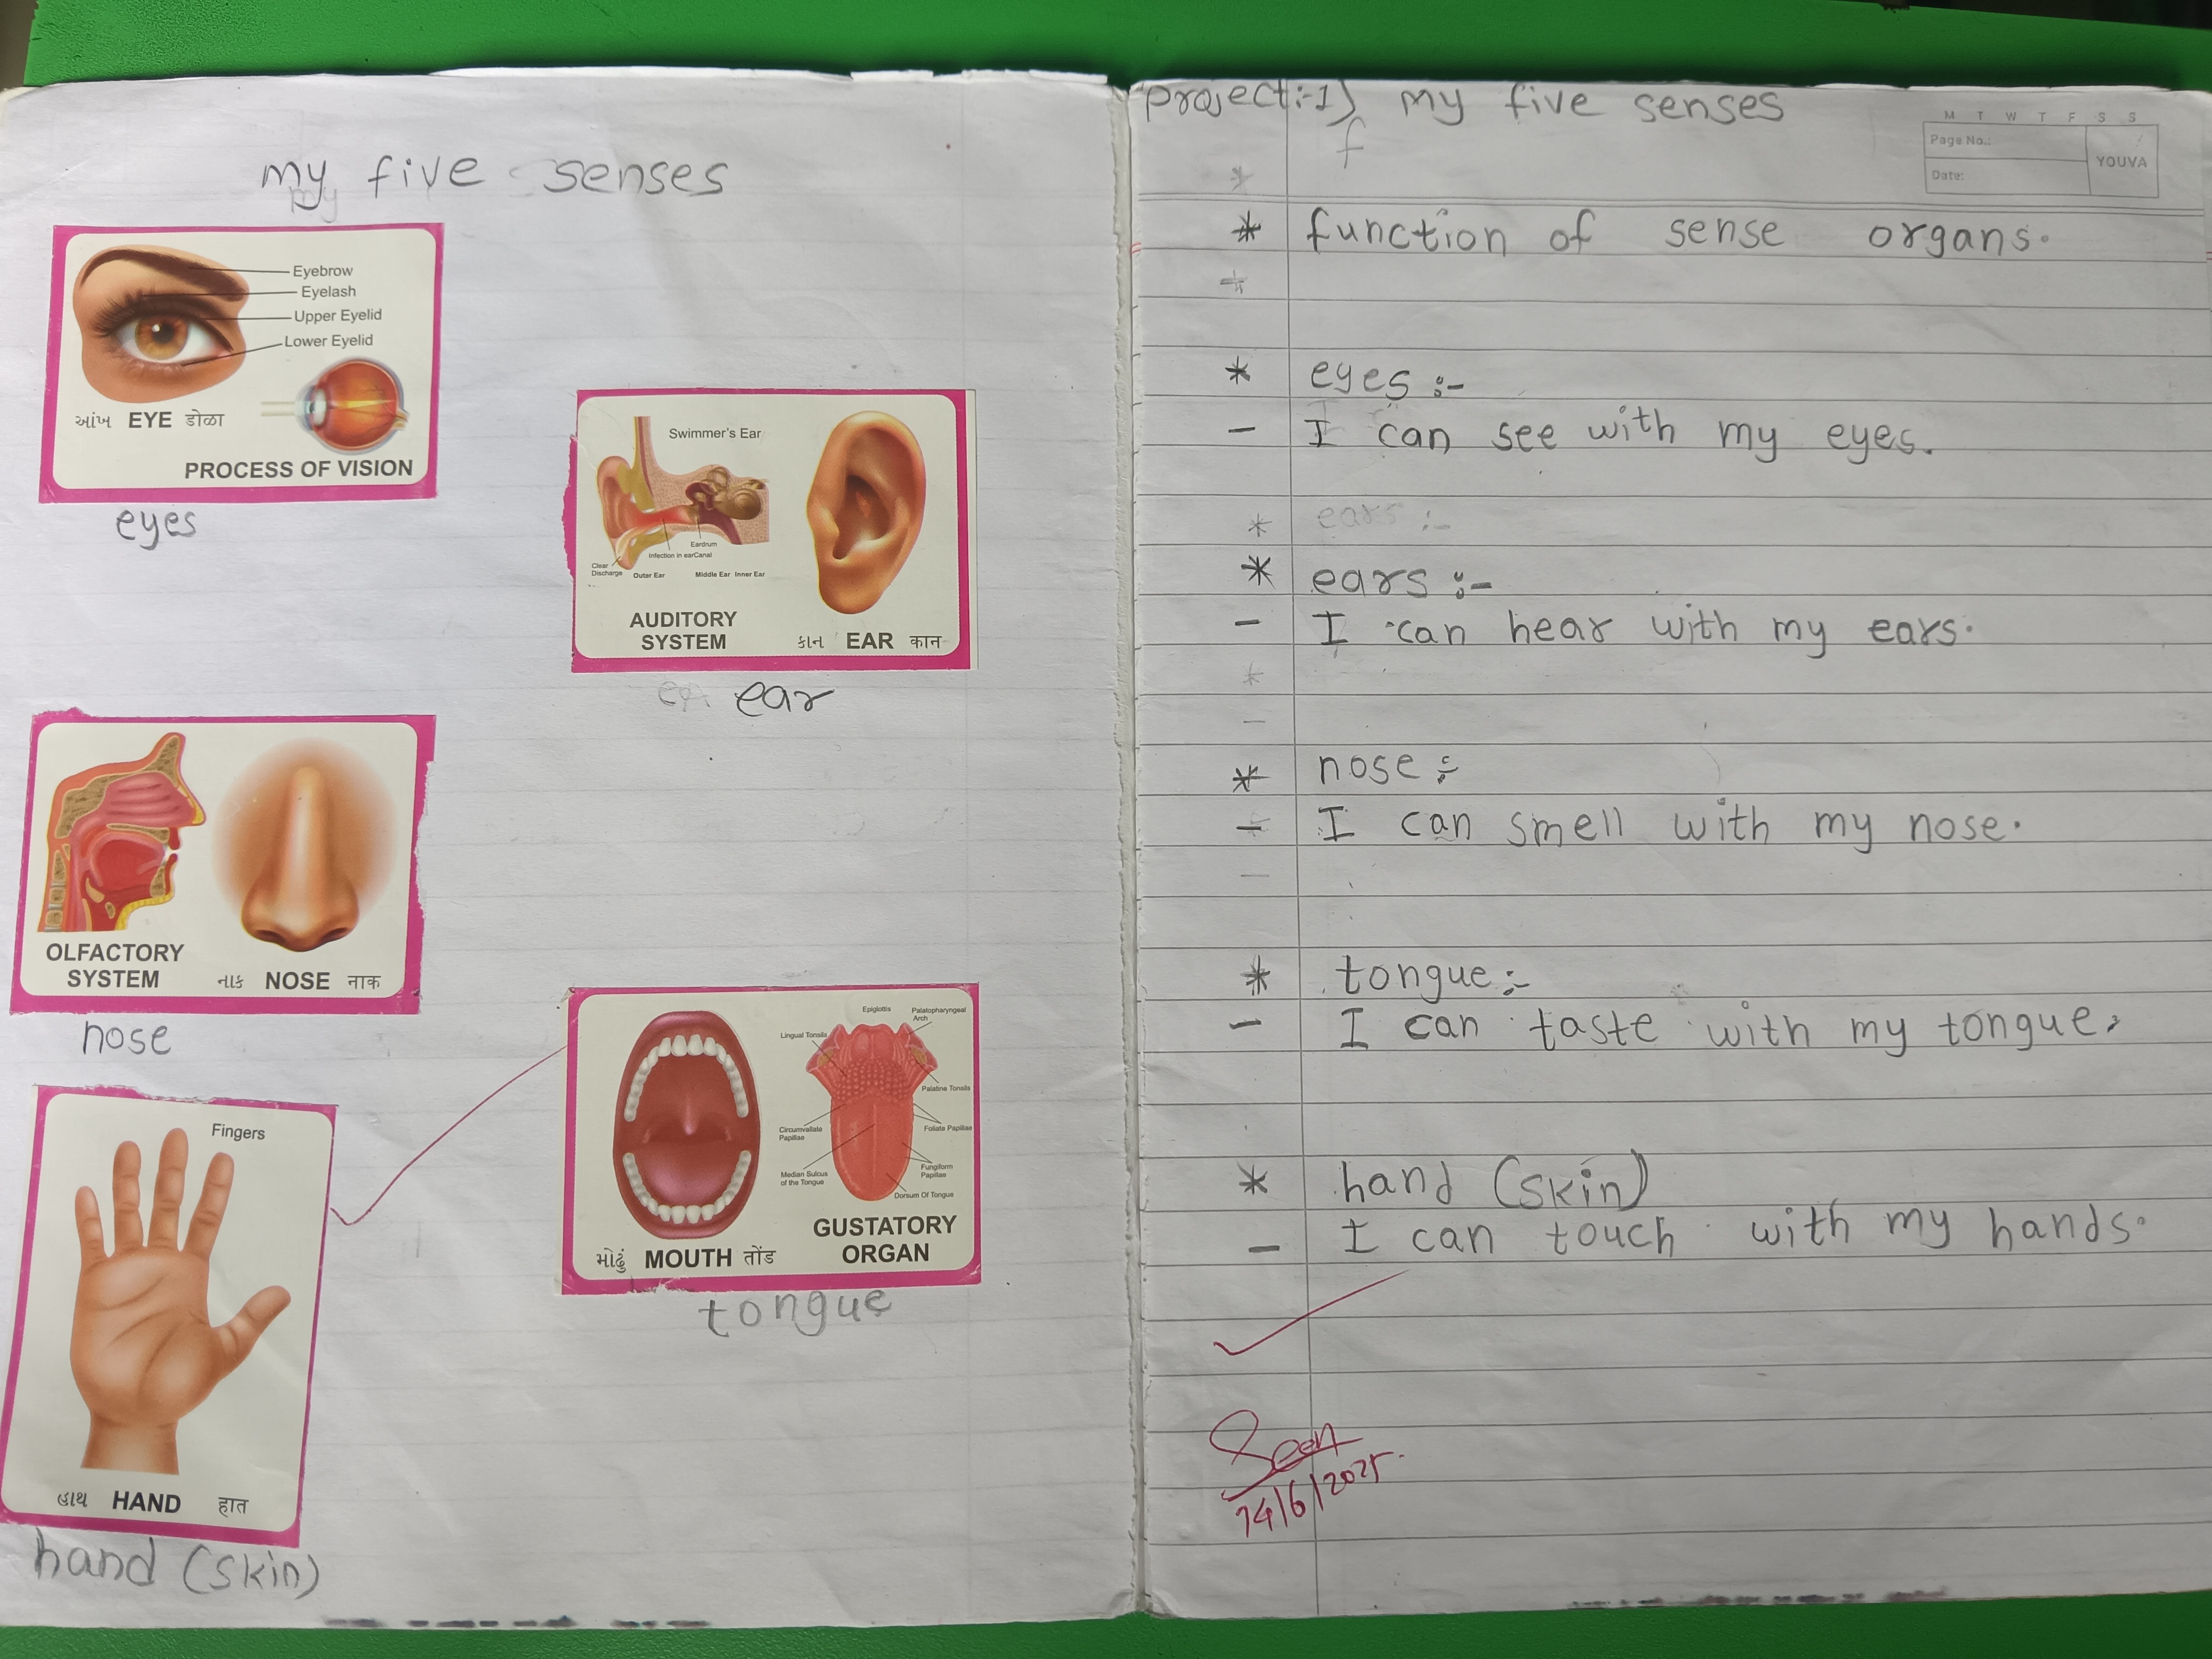 my five senses
Eyebrow
Eyelash
Upper Eyelid
Lower Eyelid
આંખ EYE डोळा
PROCESS OF VISION
eyes
Swimmer's Ear
Eardrum
Infection in earCanal
Clear
Discharge
Outer Ear Middle Ear Inner Ear
AUDITORY
SYSTEM
કાન EAR कान
ear
OLFACTORY
SYSTEM
નાક NOSE नाक
nose
Epiglottis
Palatopharyngeal
Arch
Lingual Tonsils
Palatine Tonsils
Circumvallate
Papillae
Foliate Papillae
Median Sulcus
of the Tongue
Fungiform
Papillae
Dorsum Of Tongue
GUSTATORY
ORGAN
મોઢું MOUTH तोंड
tongue
Fingers
હાથ HAND हात
hand (skin)
project:-1) my five senses
f
M T W T F S S
Page No.:
Date:
YOUVA
* function of sense organs.
* eyes :-
- I can see with my eyes.
* ears :-
* ears :-
- I can hear with my ears.
*
-
* nose :-
- I can smell with my nose.
-
* tongue :-
- I can taste with my tongue.
* hand (skin)
- I can touch with my hands.
Seen
14/6/2025.